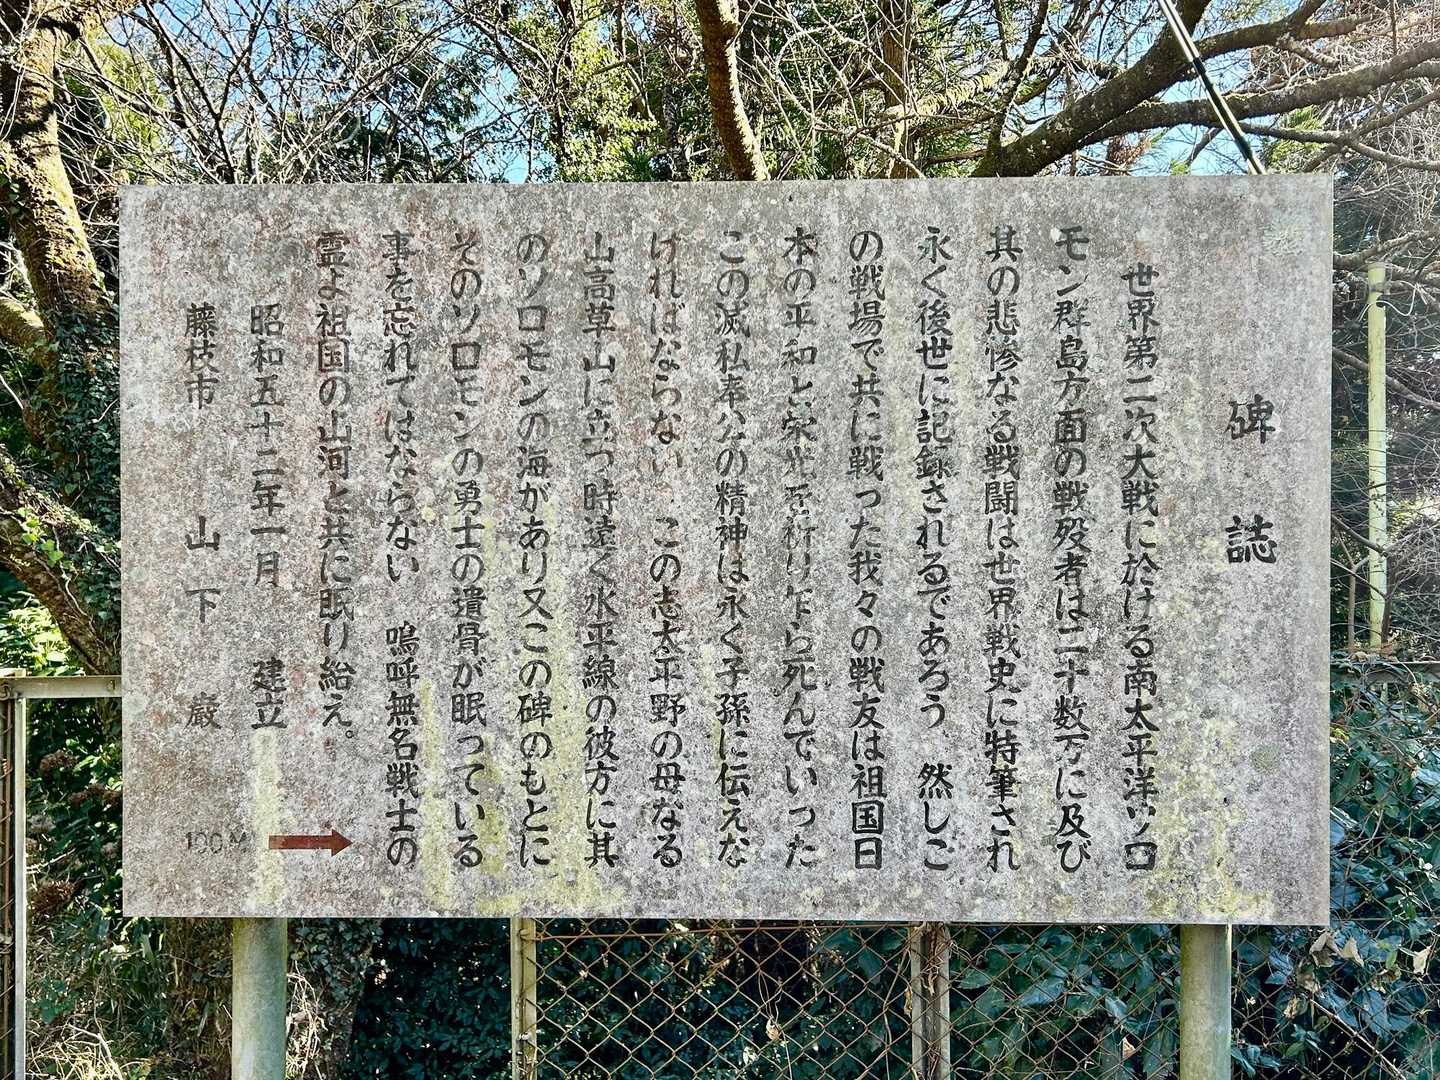 碑誌
世界第二次大戦に於ける南太平洋ソロ
モン群島方面の戦殁者は二十数万に及び
其の悲惨なる戦闘は世界戦史に特筆され
永く後世に記録されるであろう 然しこ
の戦場で共に戦った我々の戦友は祖国日
本の平和と栄光を祈り乍ら死んでいった
この滅私奉公の精神は永く子孫に伝えな
ければならない この志太平野の母なる
山高草山に立つ時遠く水平線の彼方に其
のソロモンの海があり又この碑のもとに
そのソロモンの勇士の遺骨が眠っている
事を忘れてはならない 嗚呼無名戦士の
霊よ祖国の山河と共に眠り給え。
昭和五十二年一月 建立
藤枝市 山下 巌
100M